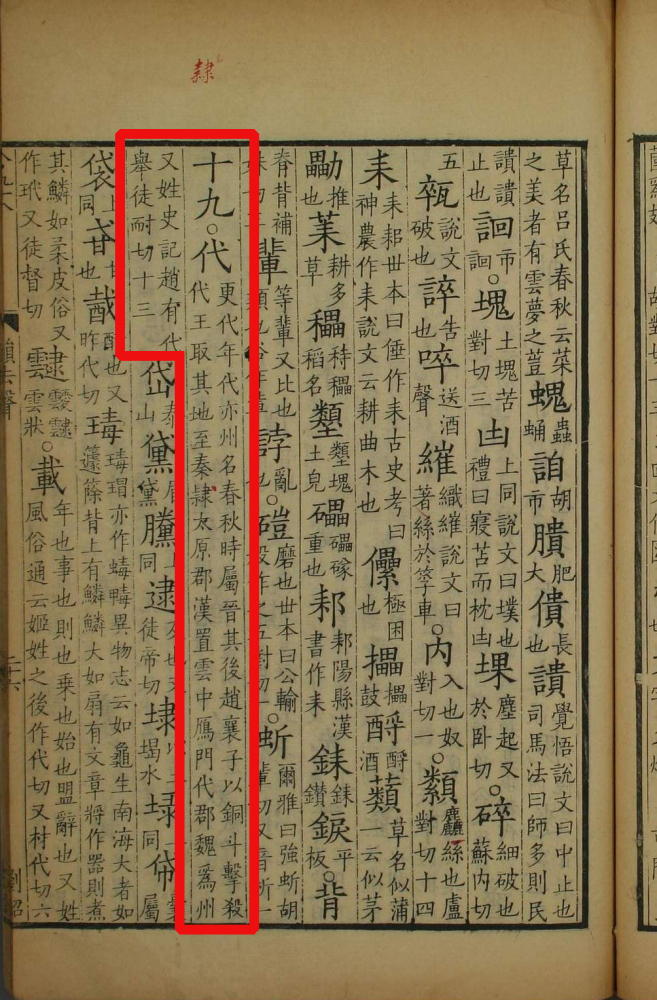 草名呂氏春秋云菜之美者有雲夢之䔇螝蟲蛹詯胡市膭肥大僓長也䜋覺悟說文曰中止也司馬法曰師多則民
䜋䜋止也市○塊土塊苦對切三凷上同說文曰墣也禮曰寢苫而枕凷堁塵起又於卧切○碎細破也蘇內切
五㼎說文破也誶告也啐送酒聲繀織繀說文曰著絲於䇣車○內入也奴對切一○纇麤絲也盧對切十四
耒耒耜世本曰倕作耒古史考曰神農作耒說文云耕曲木也儽極困也攂攂鼓酹酹酒蘱草名似蒲一云似茅
勵推也茉耕多草稻名土皃礧礧硠重也耒陽縣漢書作耒錸錸鑽錑平板○背
脊背補妹切三輩等輩又比也類也俗作軰誖亂也○磑磨也世本曰公輸般作之五對切一○䖺爾雅曰強䖺胡輩切又音祈一
十九○代更代年代亦州名春秋時屬晉其後趙襄子以銅斗擊殺代王取其地至秦隸太原郡漢置雲中鴈門代郡魏爲州
又姓史記趙有代舉徒耐切十三岱泰山黛眉黛黱上同逮及也又徒帝切埭以土堨水上同帒囊屬
袋上同甘也酢也又昨代切瑇瑇瑁亦作蝳䗯異物志云如龜生南海大者如籧篨背上有鱗鱗大如扇有文章將作器則煮
其鱗如柔皮俗又作玳又徒督切靆靉靆雲狀○載年也事也則也乗也始也盟辭也又姓風俗通云姬姓之後作代切又材代切六
隸